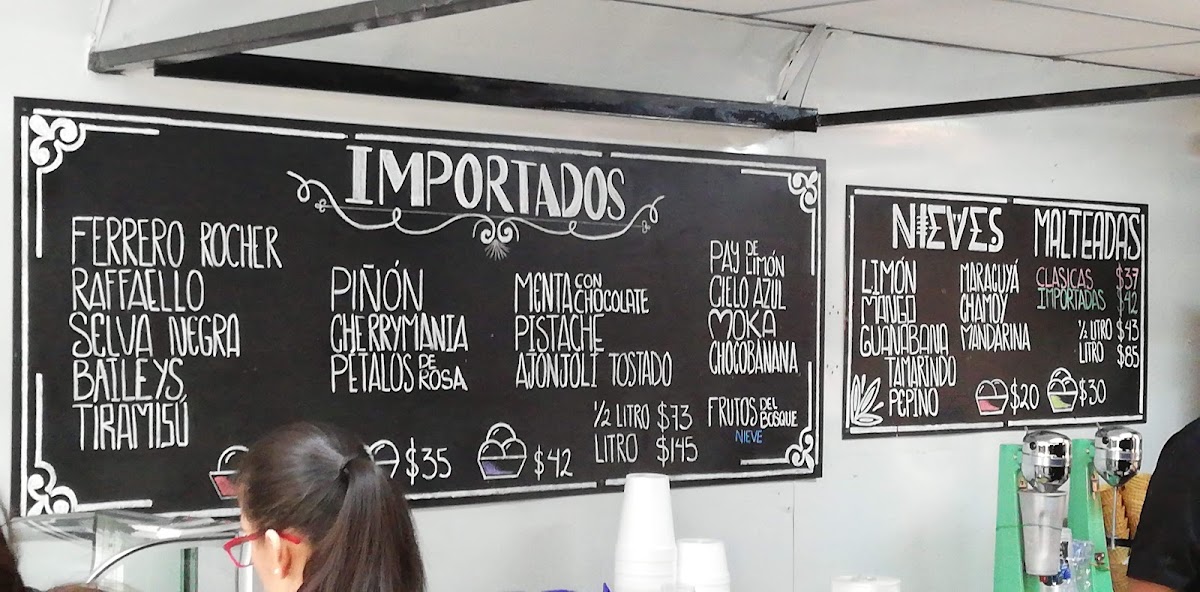 IMPORTADOS
FERRERO ROCHER
RAFFAELLO
SELVA NEGRA
BAILEYS
TIRAMISÚ
PIÑÓN
CHERRYMANIA
PÉTALOS DE ROSA
MENTA CON CHOCOLATE
PISTACHE
AJONJOLÍ TOSTADO
PAY DE LIMÓN
CIELO AZUL
MOKA
CHOCOBANANA
FRUTOS DEL BOSQUE
NIEVE
$35
$42
1/2 LITRO $73
LITRO $145
NIEVES
LIMÓN
MANGO
GUANÁBANA
TAMARINDO
PEPINO
MARACUYÁ
CHAMOY
MANDARINA
MALTEADAS
CLASICAS $37
IMPORTADAS $42
1/2 LITRO $43
LITRO $85
$20
$30